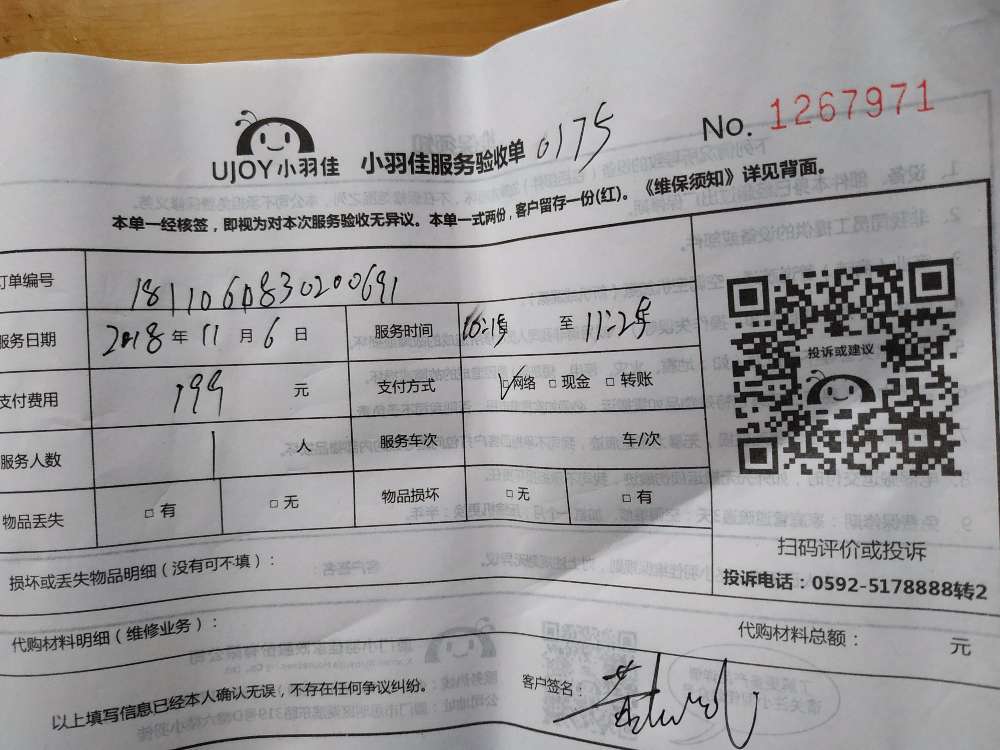 No. 1267971
UJOY小羽佳 小羽佳服务验收单 0175
本单一经核签，即视为对本次服务验收无异议。本单一式两份，客户留存一份(红)。《维保须知》详见背面。
订单编号 1811060830200691
服务日期 2018 年 11 月 6 日 服务时间 至 11:25
支付费用 199 元 支付方式 网络 □ 现金 □ 转账
服务人数 1 人 服务车次 车/次
物品丢失 □ 有 □ 无 物品损坏 □ 无 □ 有
投诉或建议
扫码评价或投诉
投诉电话：0592-5178888转2
损坏或丢失物品明细（没有可不填）：
代购材料明细（维修业务）： 代购材料总额： 元
以上填写信息已经本人确认无误，不存在任何争议纠纷。 客户签名：